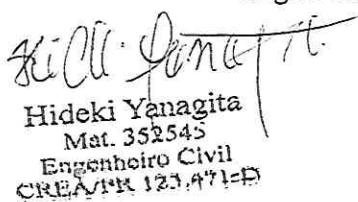 Hideki Yanagita
Mat. 352545
Engenheiro Civil
CREA/PR 123.471-D